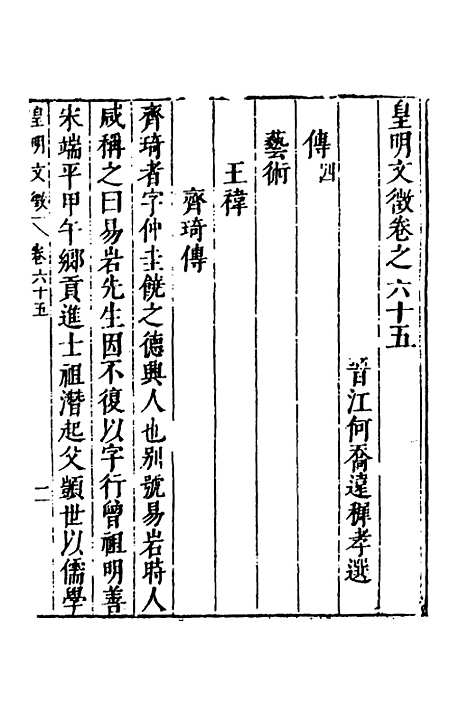 皇明文徵卷之六十五
晉江何喬遠穉孝選
傳四
藝術
王禕
齊琦傳
齊琦者字仲圭饒之德興人也别號易岩時人
咸稱之曰易岩先生因不復以字行曾祖明善
宋端平甲午鄉貢進士祖潛起父顗世以儒學
皇明文徵 卷六十五 一